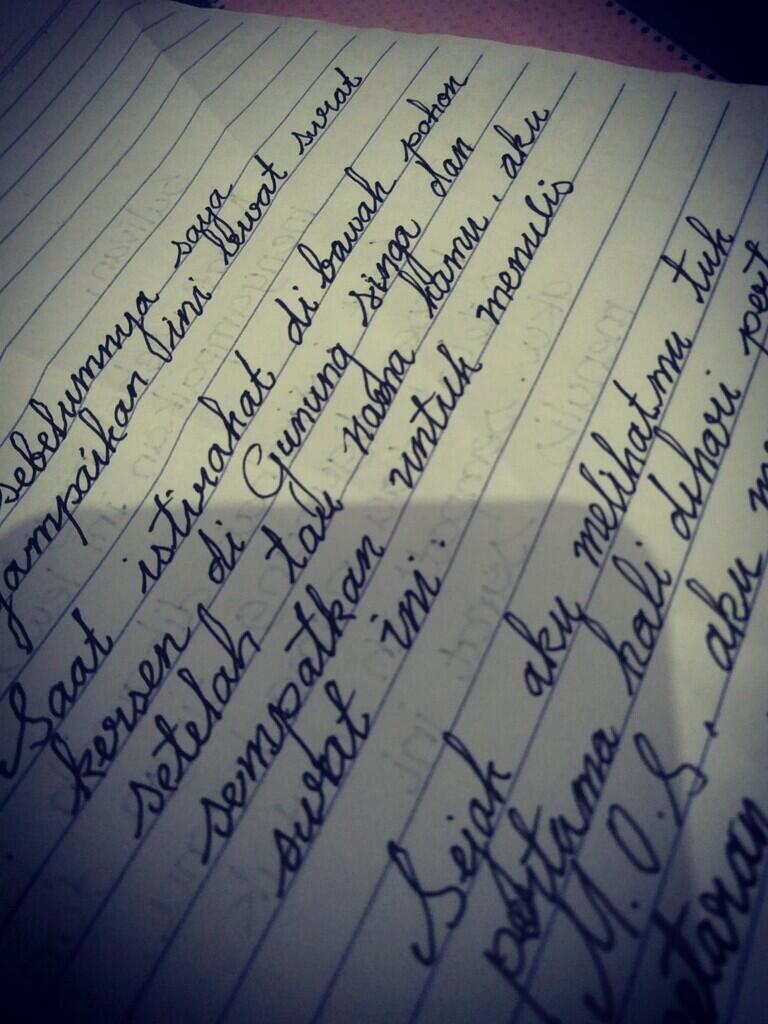 sebelumnya saya
sampaikan ini lewat surat
Saat istirahat di bawah pohon
kersen di Gunung singa dan
setelah tau nama kamu, aku
sempatkan untuk menulis
surat ini.
Sejak aku melihatmu tuk
pertama kali dihari pert
M.O.S. aku m
etaran